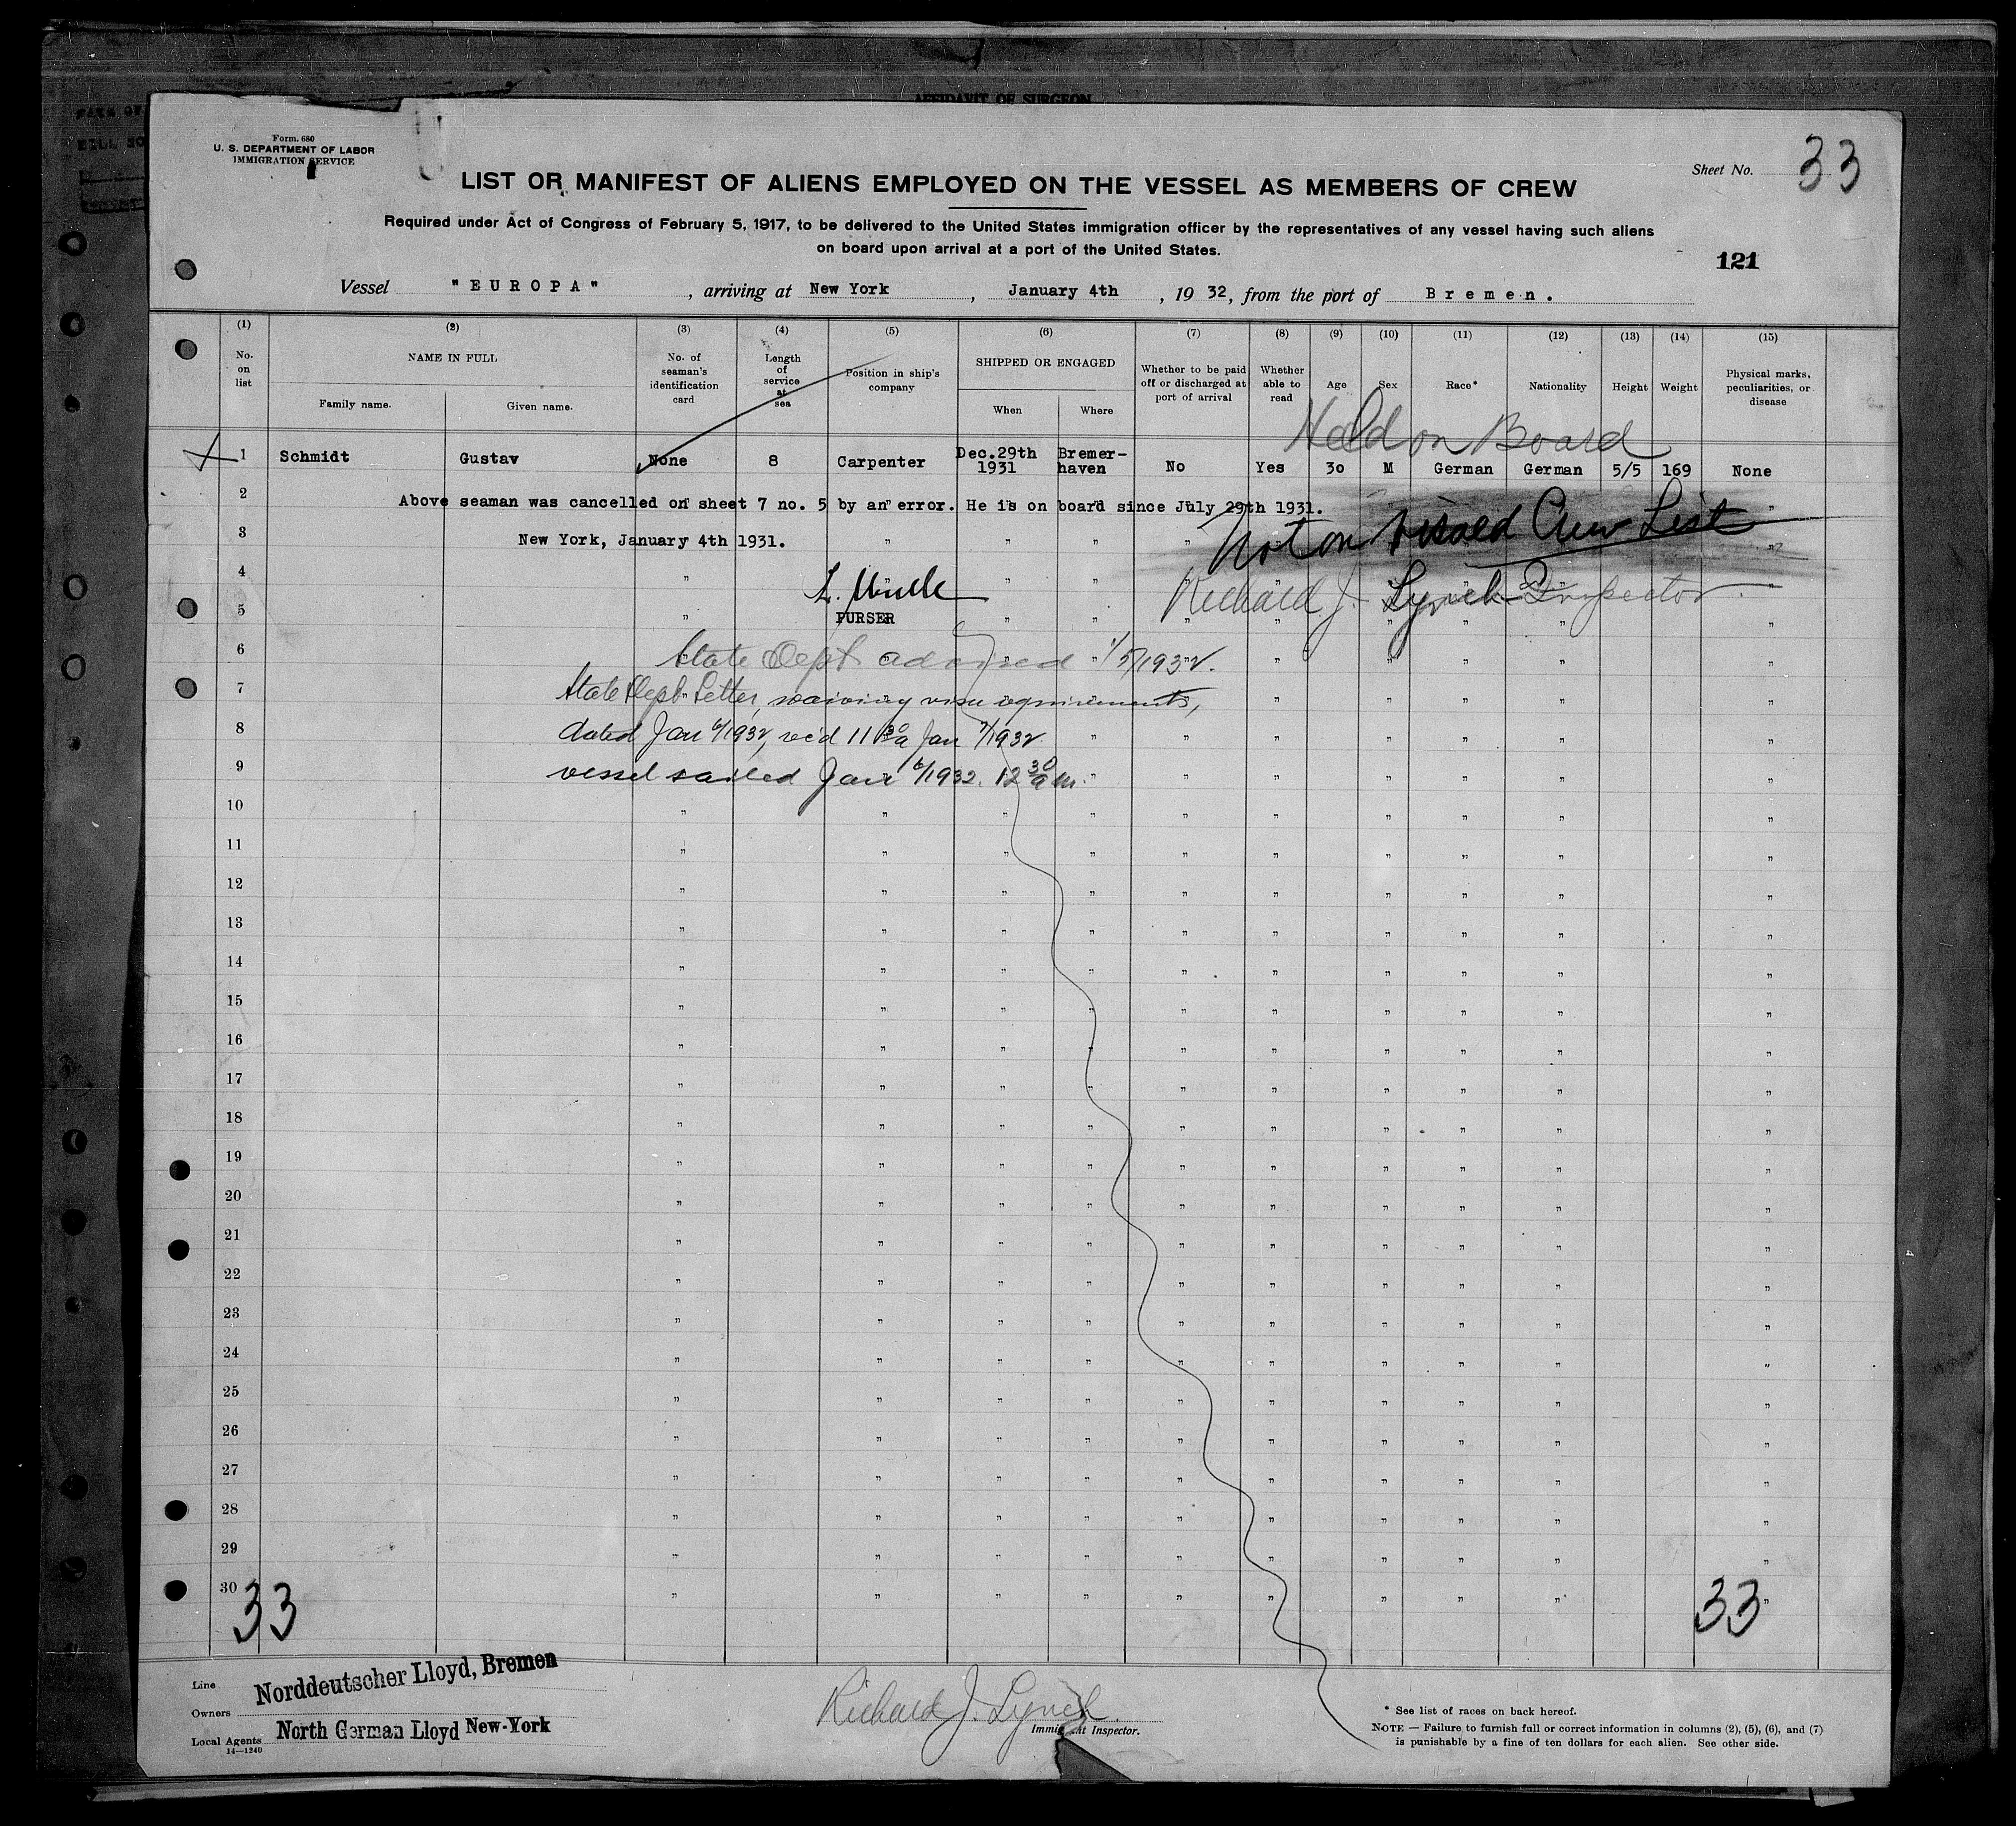 AFFIDAVIT OF SURGEON
Form 680
U. S. DEPARTMENT OF LABOR
IMMIGRATION SERVICE
Sheet No. 33
LIST OR MANIFEST OF ALIENS EMPLOYED ON THE VESSEL AS MEMBERS OF CREW
Required under Act of Congress of February 5, 1917, to be delivered to the United States immigration officer by the representatives of any vessel having such aliens
on board upon arrival at a port of the United States.
121
Vessel "EUROPA", arriving at New York, January 4th, 1932, from the port of Bremen.
(1) (2) (3) (4) (5) (6) (7) (8) (9) (10) (11) (12) (13) (14) (15)
No. on list
NAME IN FULL
Family name. Given name.
No. of seaman's identification card
Length of service at sea
Position in ship's company
SHIPPED OR ENGAGED
When Where
Whether to be paid off or discharged at port of arrival
Whether able to read
Age
Sex
Race*
Nationality
Height
Weight
Physical marks, peculiarities, or disease
Held on Board
1 Schmidt Gustav None 8 Carpenter Dec.29th 1931 Bremer-haven No Yes 30 M German German 5/5 169 None
2 Above seaman was cancelled on sheet 7 no. 5 by an error. He is on board since July 29th 1931.
Not on visaed Crew List
3 New York, January 4th 1931.
4
Richard J. Lynch Inspector
5 PURSER
6 State Dept advised 1/5/1932.
7 State Dept Letter, waiving visa requirements,
8 dated Jan 6/1932, rec'd 11 30 a Jan 7/1932
9 vessel sailed Jan 6/1932. 12 30 am.
10
11
12
13
14
15
16
17
18
19
20
21
22
23
24
25
26
27
28
29
30
33 33
Line Norddeutscher Lloyd, Bremen
Owners
Local Agents North German Lloyd New-York
14—1240
Richard J. Lynch.
Immigrant Inspector.
* See list of races on back hereof.
NOTE — Failure to furnish full or correct information in columns (2), (5), (6), and (7)
is punishable by a fine of ten dollars for each alien. See other side.